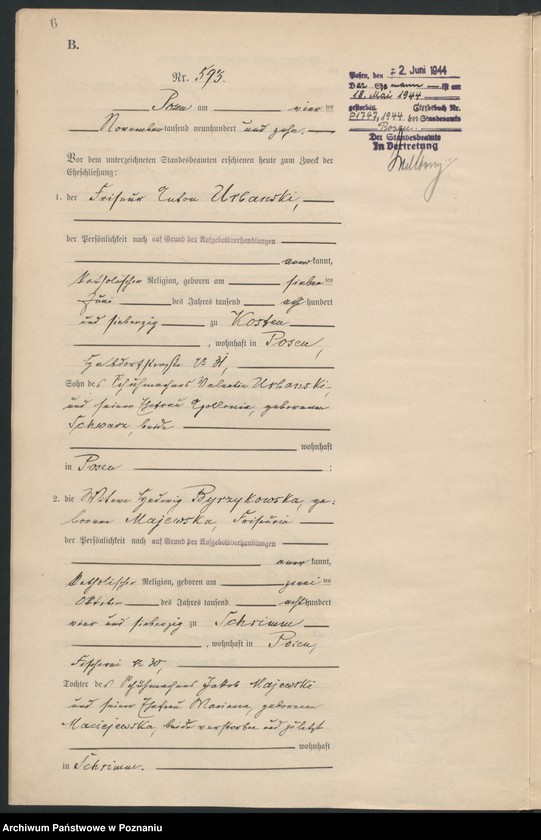 B
B.
Nr. 593.
Posen am vierten
November tausend neunhundert und zehn.
Vor dem unterzeichneten Standesbeamten erschienen heute zum Zweck der
Eheschließung:
1. der Friseur Anton Urbanski,
der Persönlichkeit nach auf Grund der Aufgebotsverhandlungen
anerkannt,
katholischer Religion, geboren am sieben ten
Juni des Jahres tausend acht hundert
und siebenzig zu Kosten
, wohnhaft in Posen,
31,
Sohn des Schuhmachers Valentin Urbanski,
und seiner Ehefrau Apollonia, geborenen
Schwarz, beide
wohnhaft
in Posen ;
2. die Witwe Hedwig Byrzykowska, ge=
borene Majewska, Friseurin
der Persönlichkeit nach auf Grund der Aufgebotsverhandlungen
anerkannt,
katholischer Religion, geboren am zwei ten
Oktober des Jahres tausend acht hundert
vier und siebenzig zu Schrimm
, wohnhaft in Posen,
Fischerei № 30,
Tochter des Schuhmachers Jakob Majewski
und seiner Ehefrau Mariana, geborenen
Maciejewska, beide verstorben und zuletzt
wohnhaft
in Schrimm.
Posen, den 2. Juni 1944
Der Ehemann ist am
18. Mai 1944
gestorben. Sterbebuch Nr.
1747/1944 des Standesamts
Posen.
Der Standesbeamte
In Vertretung
Archiwum Państwowe w Poznaniu